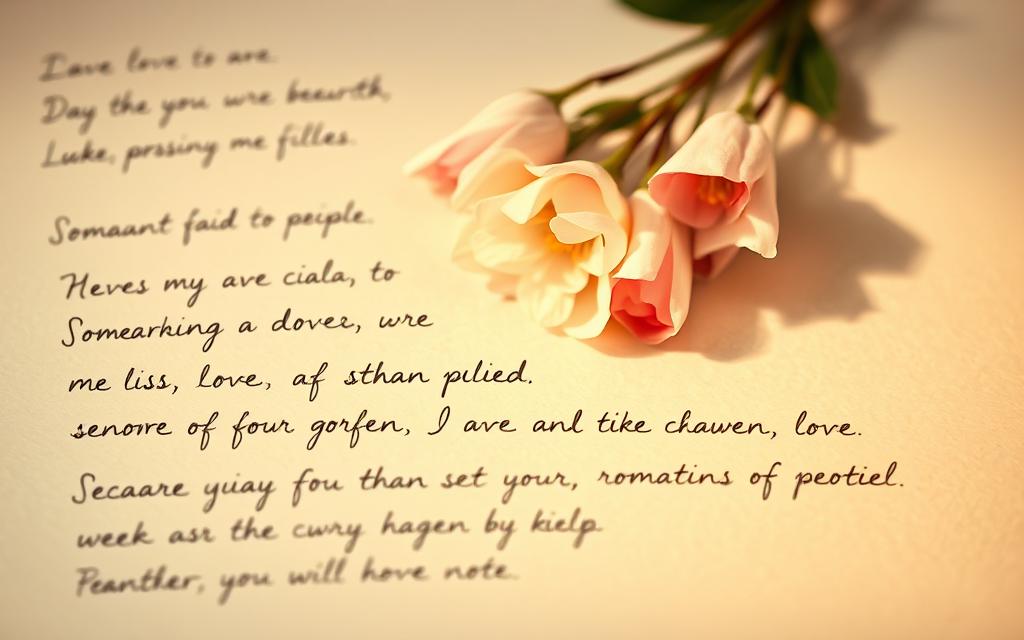 Iave love to are.
Day the you wre beewrth,
Luke, prssiny me filles.
Somaant faid to peiple.
Heves my ave ciala, to
Somearking a dover, wre
me liss, love, af sthan pilied.
senorre of four gorfen, I ave and tike chawen, love.
Secaare yuay fou than set your, romatins of peotiel.
week asr the cwry hagen by kielp.
Peanther, you will hove note.